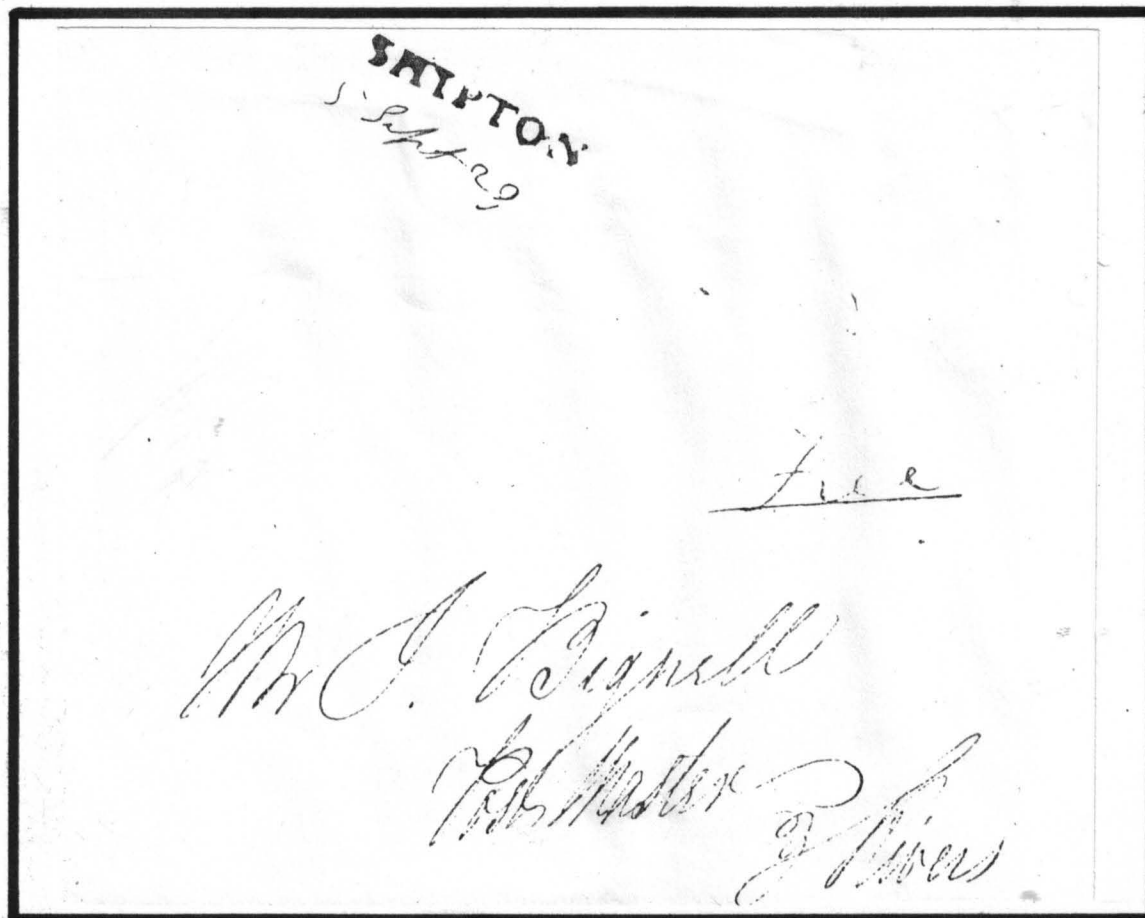 SHIPTON
Sept 29
Free
Mr I. Bignell
Post Master
3 Rivers